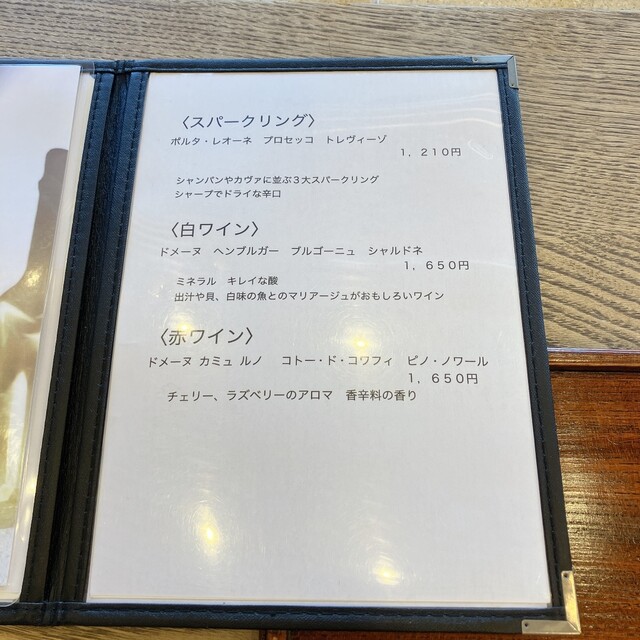 〈スパークリング〉
ポルタ・レオーネ プロセッコ トレヴィーゾ
1，210円
シャンパンやカヴァに並ぶ3大スパークリング
シャープでドライな辛口
〈白ワイン〉
ドメーヌ ヘンブルガー ブルゴーニュ シャルドネ
1，650円
ミネラル キレイな酸
出汁や貝、白味の魚とのマリアージュがおもしろいワイン
〈赤ワイン〉
ドメーヌ カミュ ルノ コトー・ド・コワフィ ピノ・ノワール
1，650円
チェリー、ラズベリーのアロマ 香辛料の香り